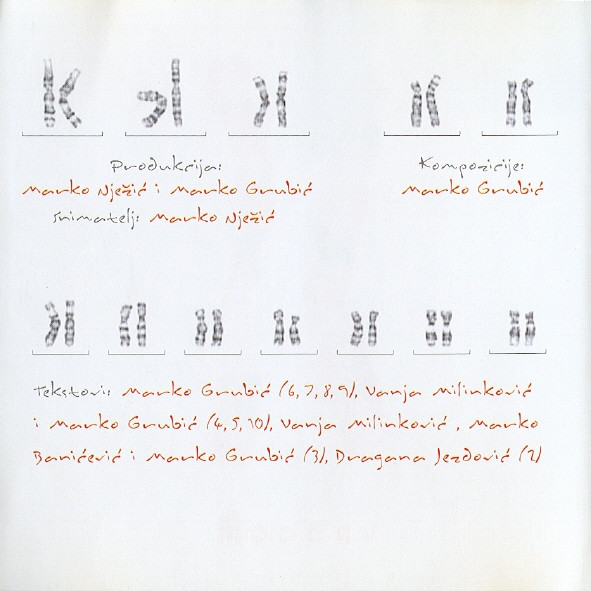 Produkcija:
Marko Nježić i Marko Grubić
Snimatelj: Marko Nježić
Kompozicije:
Marko Grubić
Tekstovi: Marko Grubić (6, 7, 8, 9), Vanja Milinković
i Marko Grubić (4, 5, 10), Vanja Milinković, Marko
Banićević i Marko Grubić (3), Dragana Jezdović (2)